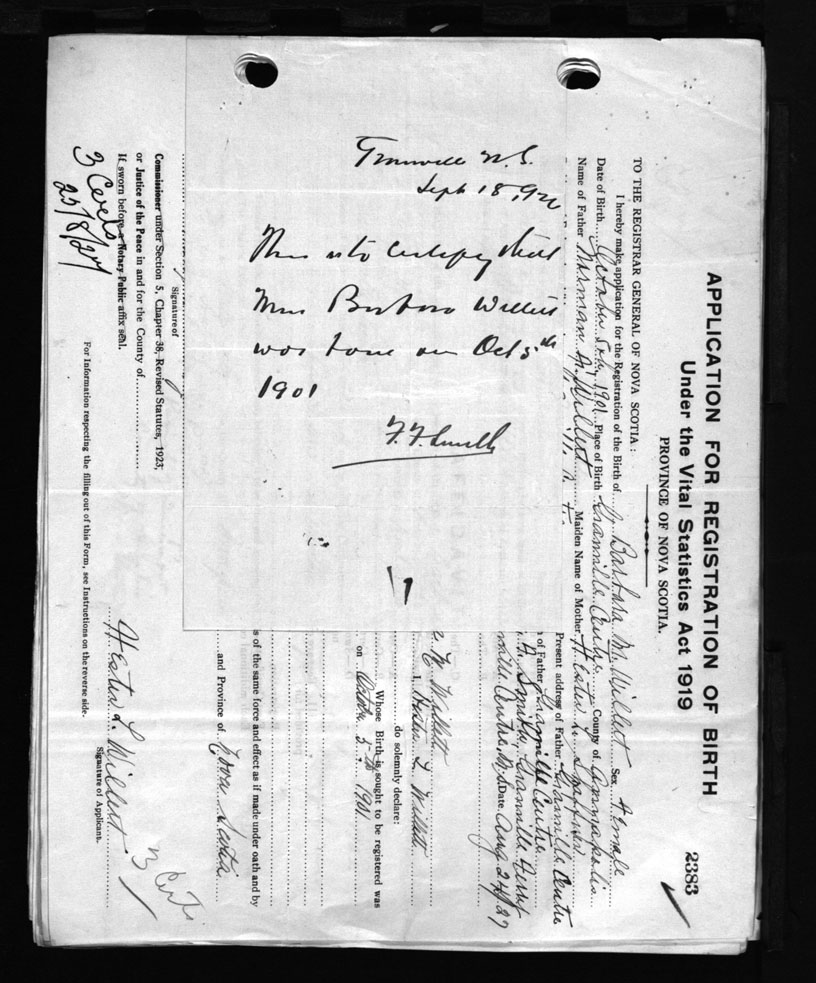 APPLICATION FOR REGISTRATION OF BIRTH
2383
Under the Vital Statistics Act 1919
PROVINCE OF NOVA SCOTIA.
TO THE REGISTRAR GENERAL OF NOVA SCOTIA:
I hereby make application for the Registration of the Birth of Barbara M. Willett Sex Female
Date of Birth October 5th, 1901 Place of Birth Granville Centre County of Annapolis
Name of Father Norman M. Willett Maiden Name of Mother Hester L.
Present address of Father Granville Centre
of Father Granville Centre
Granville Ferry
ville Centre, N.S. Date Aug 24/27
M Willett
I, Hester L. Willett
do solemnly declare:
Whose Birth is sought to be registered was
on October 5th 1901
s of the same force and effect as if made under oath and by
and Province of Nova Scotia
Hester L. Willett
Signature of Applicant.
Signature of
Commissioner under Section 5, Chapter 38, Revised Statutes, 1923,
or Justice of the Peace in and for the County of
If sworn before a Notary Public affix seal.
For Information respecting the filling out of this Form, see Instructions on the reverse side.
3 Certs
25/8/27
3 Certs
Granville N.S.
Sept 18, 192
This is to certify that
Miss Barbara Willett
was born on Oct 5th
1901
F. F. Smith